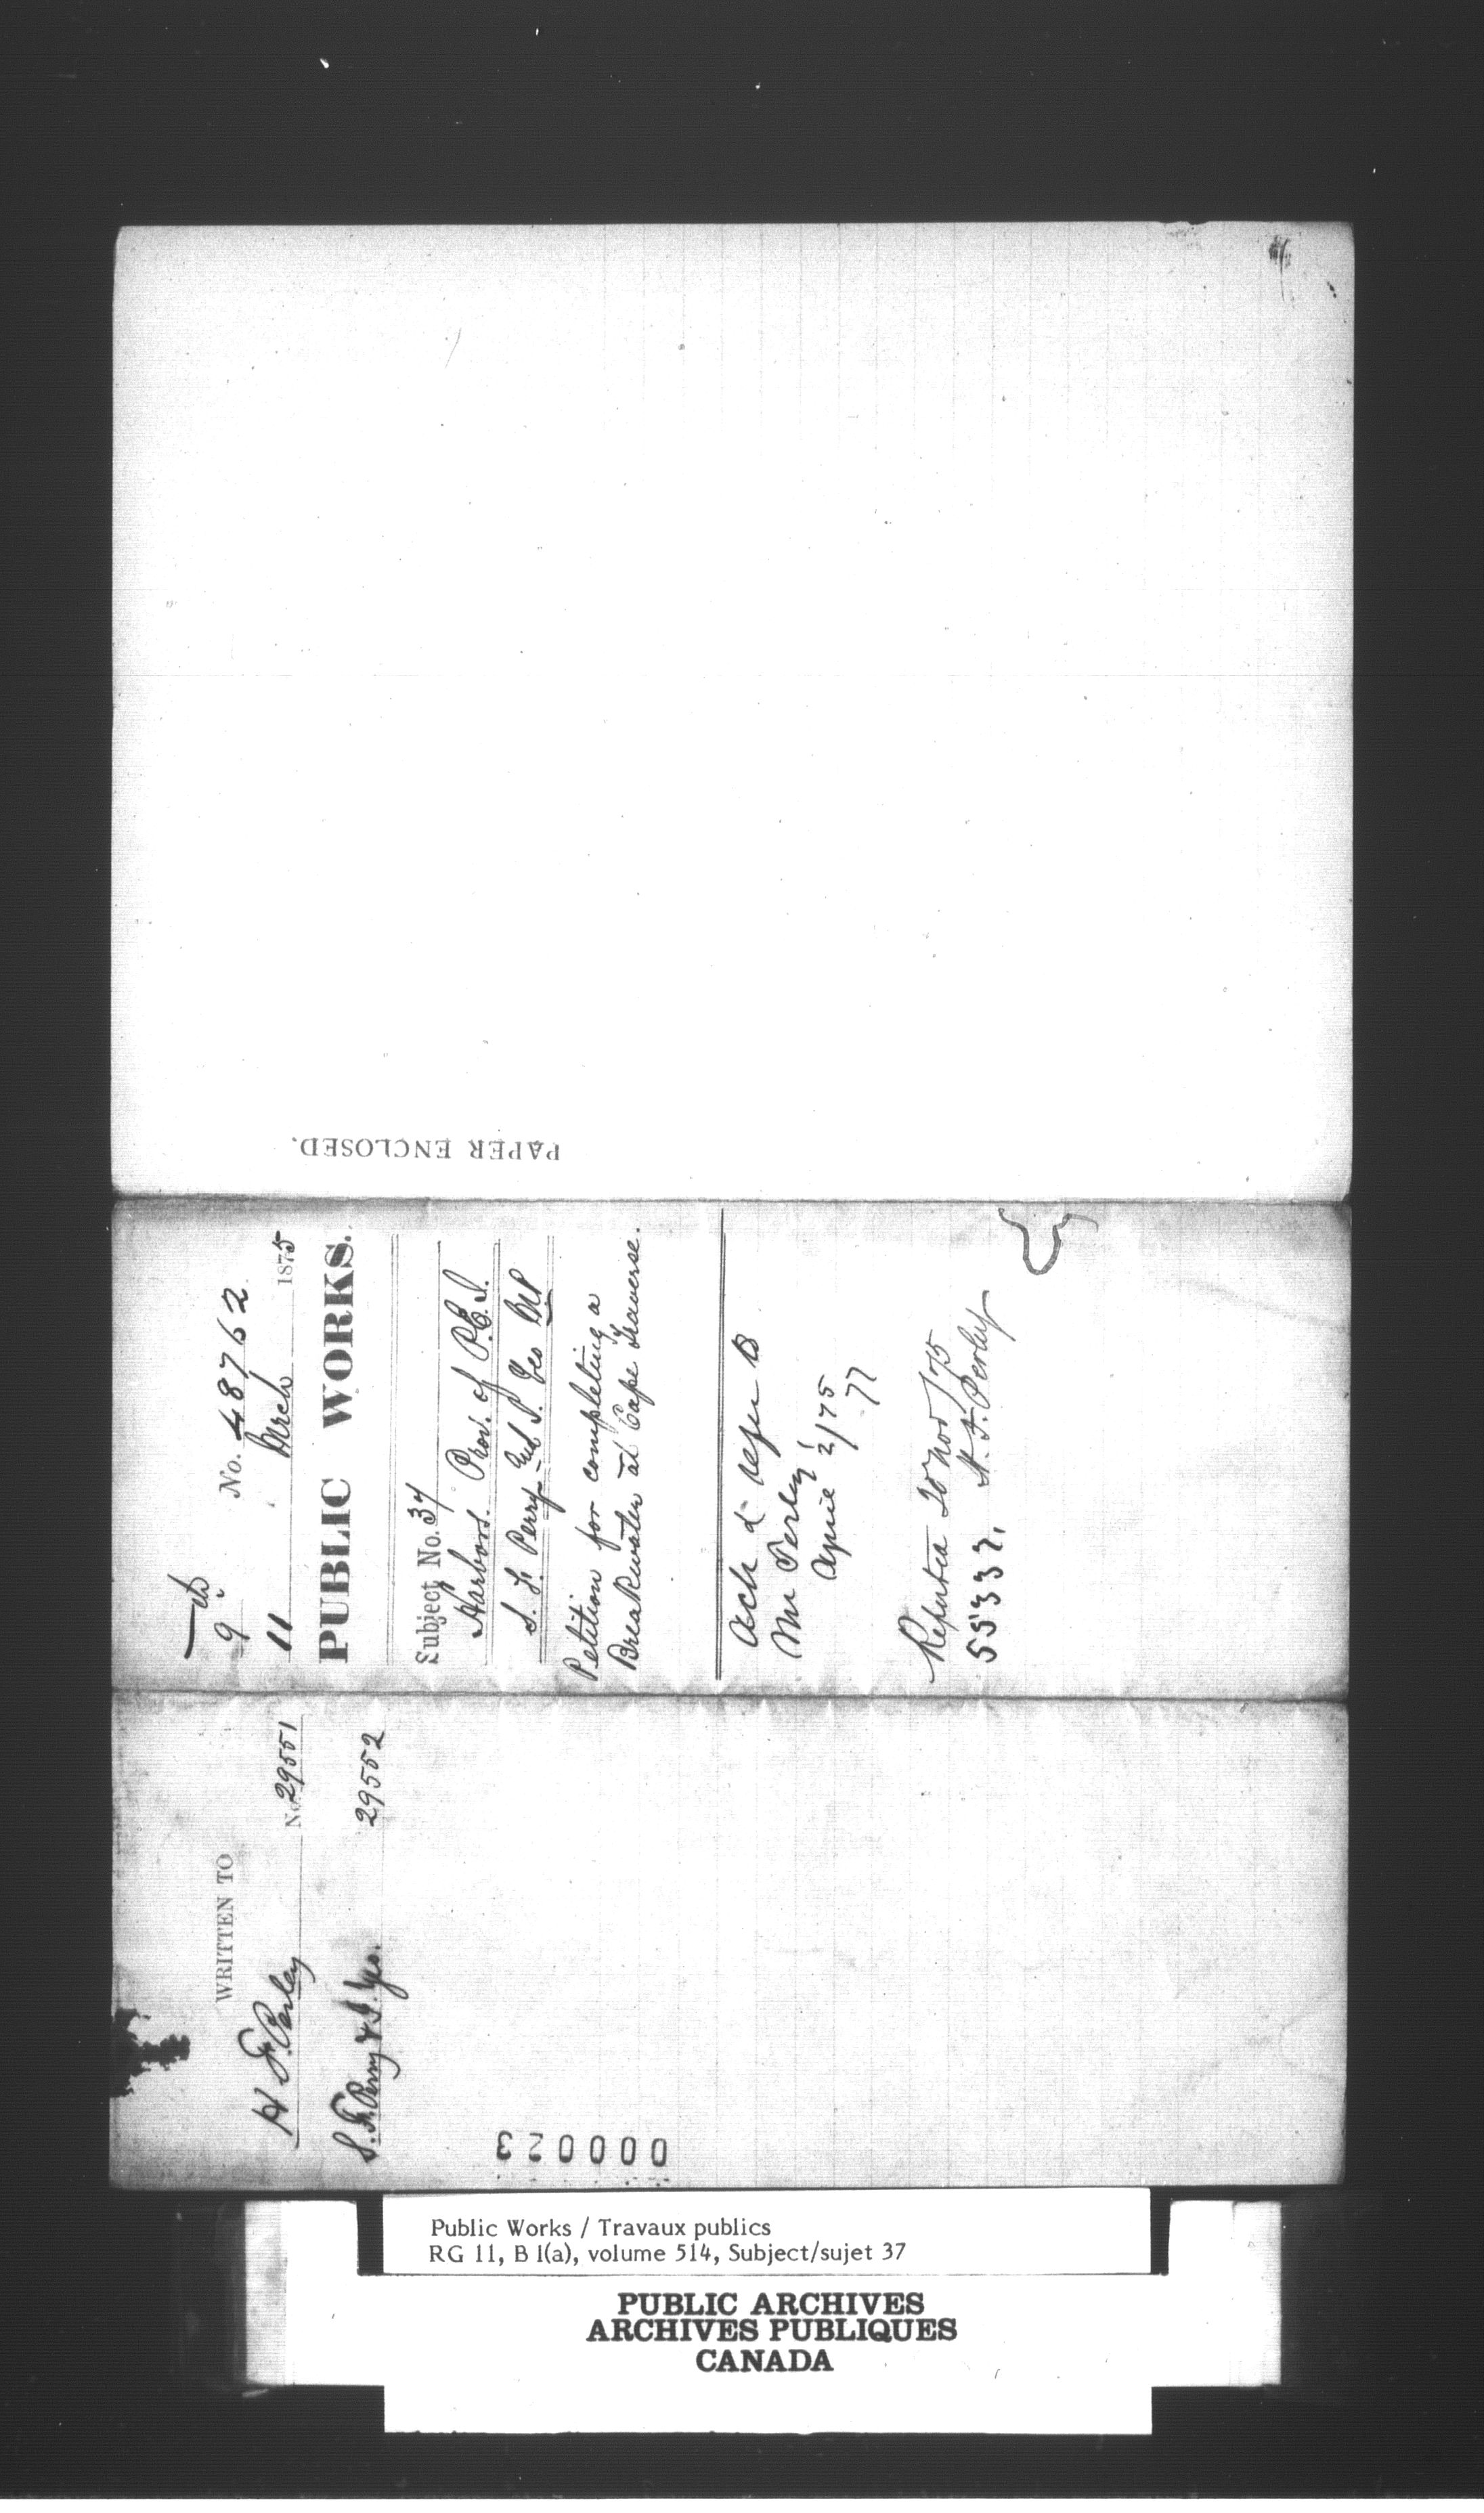 PAPER ENCLOSED.
9th
No. 48762
11 March 1875
PUBLIC WORKS.
Subject No. 37
Harbors. Prov. of P.E.I.
S. F. Perry and J. Yeo MP
Petition for completing a
Breakwater at Cape Traverse.
Ack & refer to
Mr Perley
April 2/75
77
Reported 20 Nov /75
55337. H. F. Perley
WRITTEN TO
H F. Perley No. 29551
S. F. Perry & J. Yeo. 29552
000023
Public Works / Travaux publics
RG 11, B 1(a), volume 514, Subject/sujet 37
PUBLIC ARCHIVES
ARCHIVES PUBLIQUES
CANADA